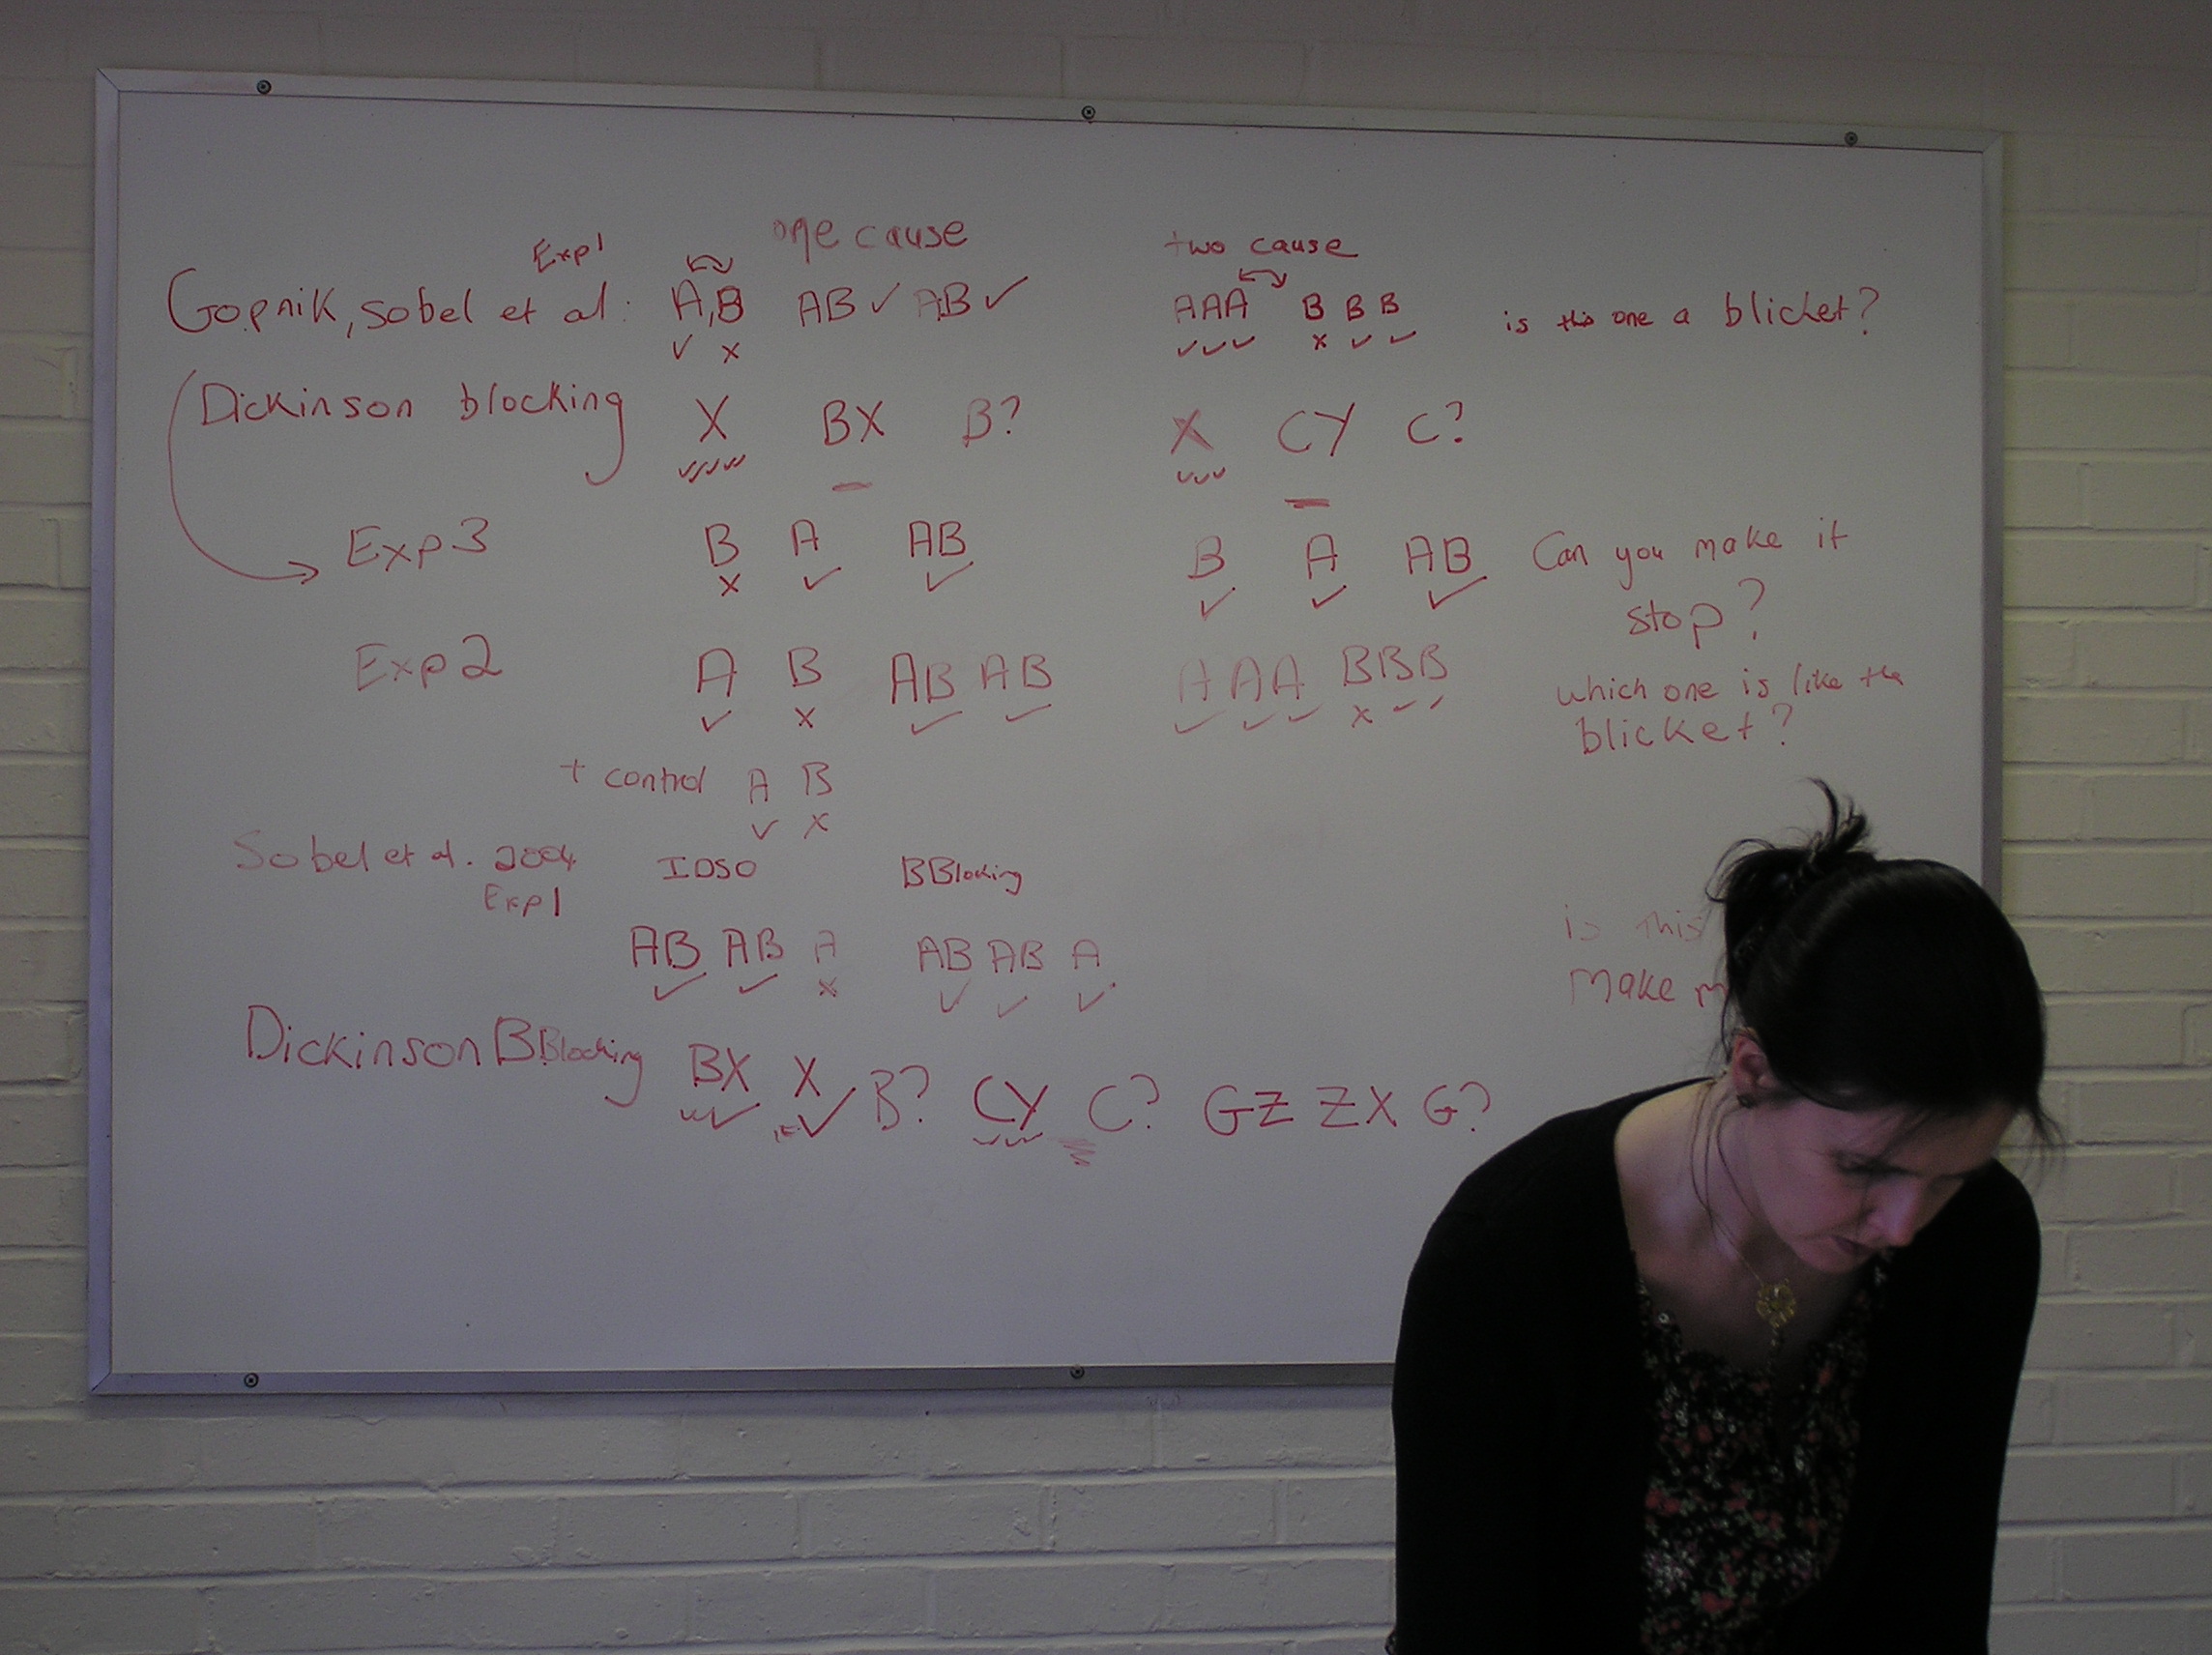 one cause two cause
Exp1
Gopnik, Sobel et al: A,B AB ✓ AB ✓ AAA B B B is this one a blicket?
✓ x ✓✓✓ x ✓ ✓
Dickinson blocking X BX B? X CY C?
✓✓✓✓ ✓✓✓
Exp3 B A AB B A AB Can you make it
x ✓ ✓ ✓ ✓ ✓ stop?
Exp2 A B AB AB A AA BBB which one is like the
✓ x ✓ ✓ ✓ ✓ ✓ x ✓ ✓ blicket?
+ control A B
✓ x
Sobel et al. 2004 IOSO BBlocking
Exp1
AB AB A AB AB A is this
✓ ✓ x ✓ ✓ ✓ make
Dickinson BBlocking BX X B? CY C? GZ ZX G?